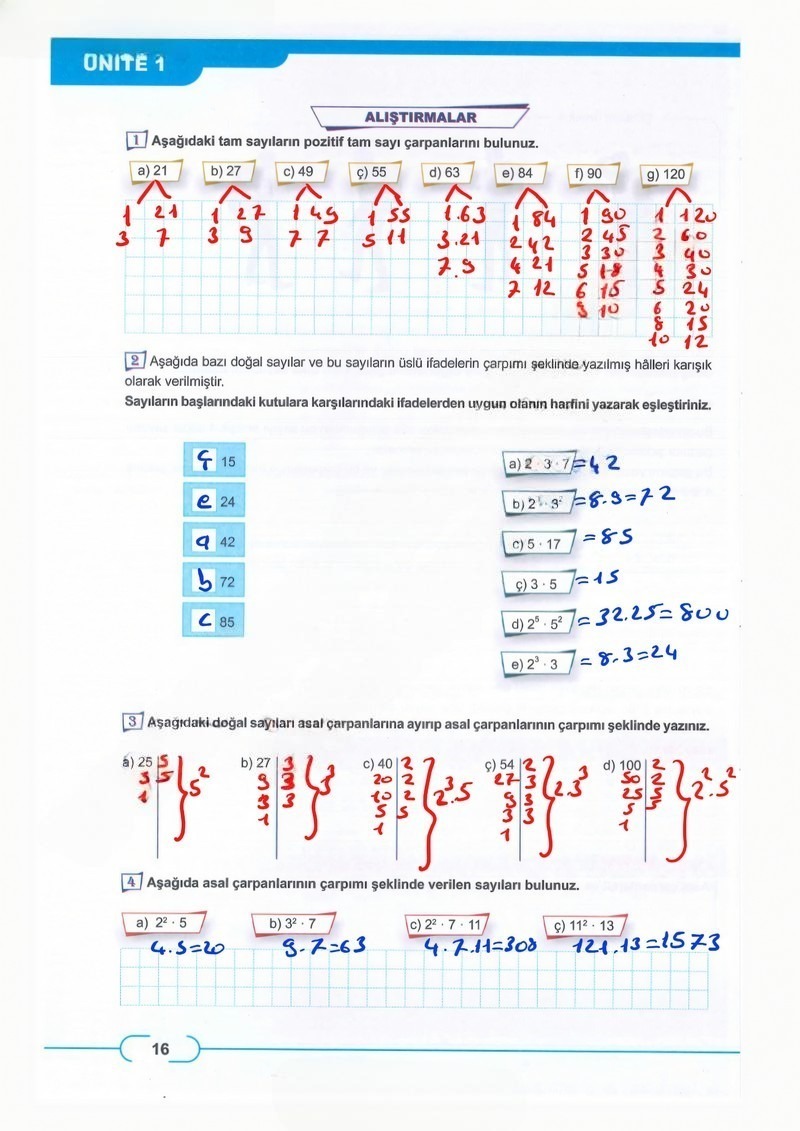 ÜNİTE 1
ALIŞTIRMALAR
1 Aşağıdaki tam sayıların pozitif tam sayı çarpanlarını bulunuz.
a) 21 b) 27 c) 49 ç) 55 d) 63 e) 84 f) 90 g) 120
1 21 1 27 1 49 1 55 1.63 1 84 1 90 1 120
3 7 3 9 7 7 5 11 3.21 2 42 2 45 2 60
7.9 4 21 3 30 3 40
7 12 5 18 4 30
6 15 5 24
9 10 6 20
8 15
10 12
2 Aşağıda bazı doğal sayılar ve bu sayıların üslü ifadelerin çarpımı şeklinde yazılmış hâlleri karışık
olarak verilmiştir.
Sayıların başlarındaki kutulara karşılarındaki ifadelerden uygun olanın harfini yazarak eşleştiriniz.
ç 15 a) 2 · 3 · 7 =42
e 24 b) 2³ · 3² =8.9=72
a 42 c) 5 · 17 =85
b 72 ç) 3 · 5 =15
c 85 d) 2⁵ · 5² = 32.25=800
e) 2³ · 3 = 8.3=24
3 Aşağıdaki doğal sayıları asal çarpanlarına ayırıp asal çarpanlarının çarpımı şeklinde yazınız.
a) 25 5 b) 27 3 c) 40 2 ç) 54 2 d) 100 2
5 5 5² 9 3 3³ 20 2 27 3 50 2
1 3 3 10 2 2³.5 9 3 2.3³ 25 5 2².5²
1 5 5 3 3 5 5
1 1 1
4 Aşağıda asal çarpanlarının çarpımı şeklinde verilen sayıları bulunuz.
a) 2² · 5 b) 3² · 7 c) 2² · 7 · 11 ç) 11² · 13
4.5=20 9.7=63 4.7.11=308 121.13=1573
16